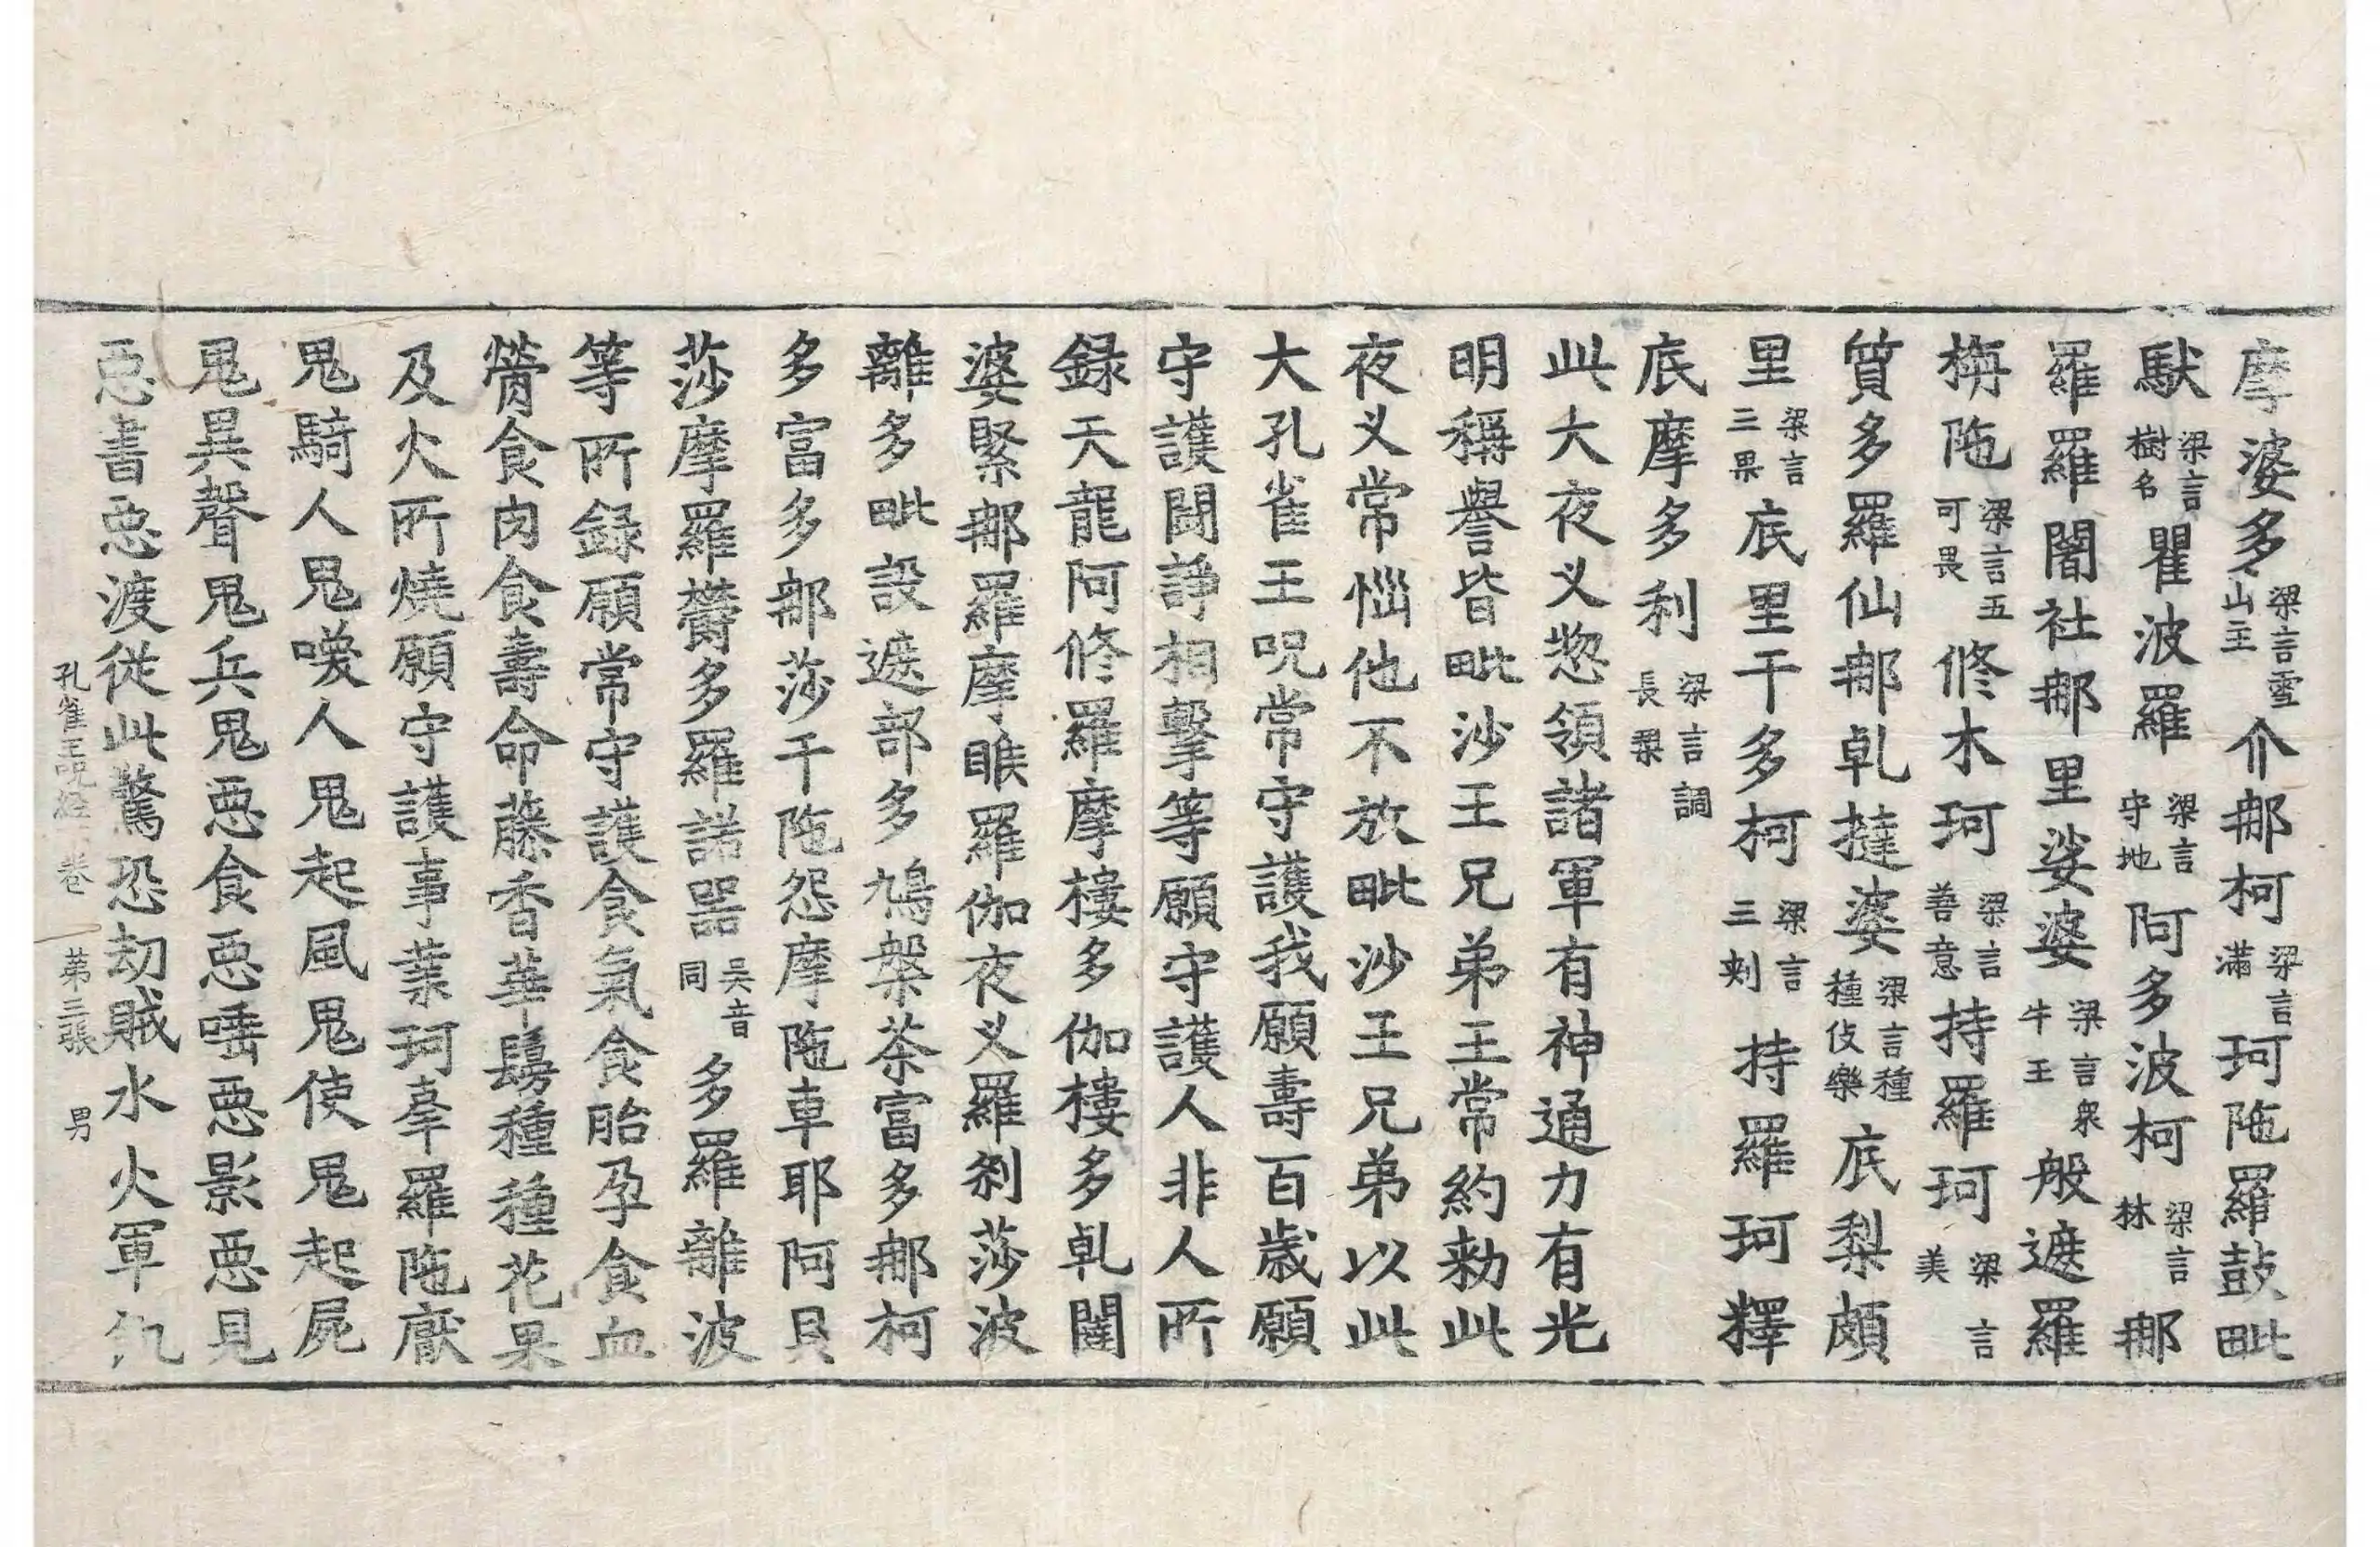 摩婆多梁言雪山主介那柯梁言滿珂陁羅鼓毗
䭾梁言樹名瞿波羅梁言守地阿多波柯梁言林那
羅羅闍社那里娑婆梁言衆牛王般遮羅
栴陁梁言五可畏修木珂梁言善意持羅珂梁言美
質多羅仙那乹撻婆梁言種種伎樂底梨頗
里梁言三果底里干多柯梁言三刺持羅珂釋
底摩多利梁言調長槊
此大夜义惣領諸軍有神通力有光
明稱譽皆毗沙王兄弟王常約勑此
夜义常惱他不放毗沙王兄弟以此
大孔雀王呪常守護我願壽百歲願
守護鬪諍相擊等願守護人非人所
録天龍阿修羅摩樓多伽樓多乹闥
婆緊那羅摩睺羅伽夜义羅刹莎波
離多毗設遮部多鳩槃茶富多那柯
多富多那莎干陁怨摩陁車耶阿貝
莎摩羅欝多羅諾噐吳音同多羅離波
等所録願常守護食氣食胎孕食血
膋食肉食壽命藤香華鬘種種花果
及火所燒願守護事葉珂拏羅陁厭
鬼騎人鬼喚人鬼起風鬼使鬼起屍
鬼異聲鬼兵鬼惡食惡唾惡影惡見
惡書惡渡從此驚恐劫賊水火軍飢
孔雀王呪經卷 第三張 男